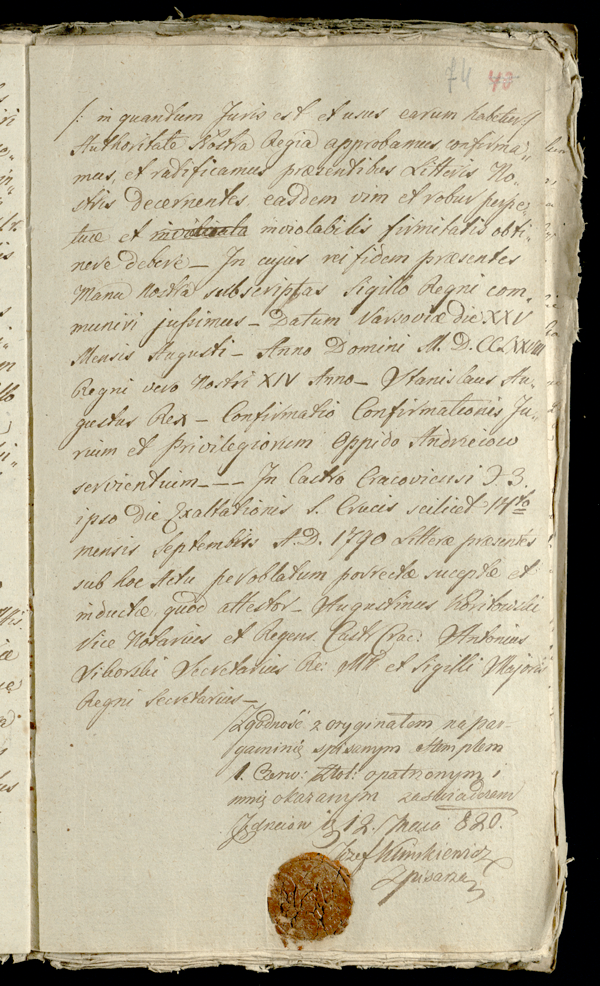 74 43
/: in quantum Juris est et usus earum habetur :/
Authoritate Nostra Regia approbamus, confirma-
mus, et radificamus præsentibus Litteris No-
stris decernentes easdem vim et robur perpe-
tuæ et inviolabilis firmitatis obti-
nere debere — In cujus rei fidem præsentes
Manu Nostra subscriptas Sigillo Regni com-
muniri jussimus — Datum Varsoviæ die XXV
Mensis Augusti — Anno Domini M.D.CCLXXVIII
Regni vero Nostri XIV Anno — Stanislaus Au-
gustus Rex — Confirmatio Confirmationis Ju-
rium et Privilegiorum Oppido Andrzeiow
servientium — — In Castro Cracoviensi 3.
ipso die Exaltationis S. Crucis scilicet 14to
mensis Septembris A.D. 1790 Litteræ præsentes
sub hoc Actu per oblatum porrectæ suceptæ et
inductæ, quod attestor — Augustinus
Vice Notarius et Regens Castr: Crac: Antonius
Siborski Secretarius Re: Mtt et Sigilli Majoris
Regni Secretarius —
Zgodność z oryginałem na par-
gaminie spisanym stemplem
1. Czerw: Złot: opatrzonym i
mnie okazanym zaświadczam
12. Maia 820.
Józef Klimkiewicz
Pisarz